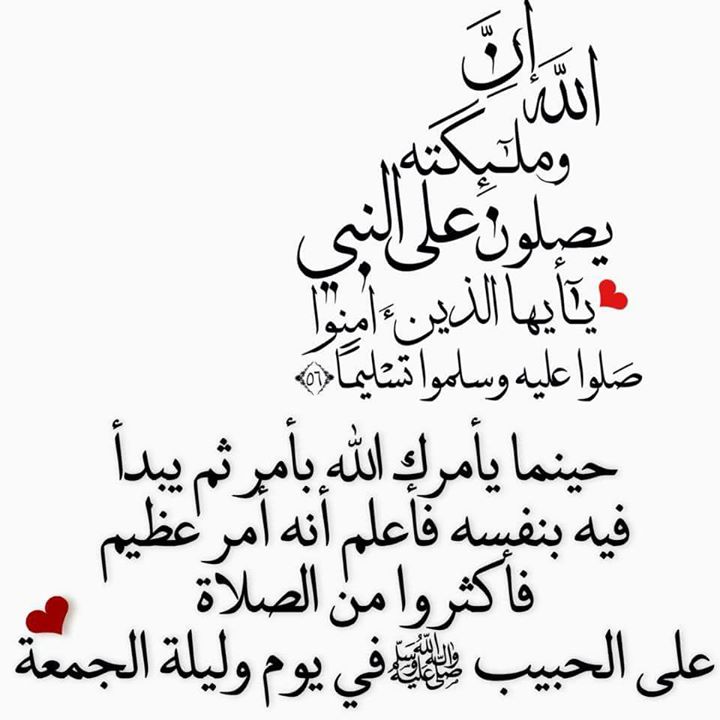 إِنَّ
اللَّهَ
وملـٰٓئِكَته
يصلون على النبي
يـٰٓأيها الذين ءَامنوا
صَلوا عليه وسلموا تَسْليمًا ﴿٥٦﴾
حينما يأمرك الله بأمر ثم يبدأ
فيه بنفسه فأعلم أنه أمر عظيم
فأكثروا من الصلاة
على الحبيب ﷺ في يوم وليلة الجمعة